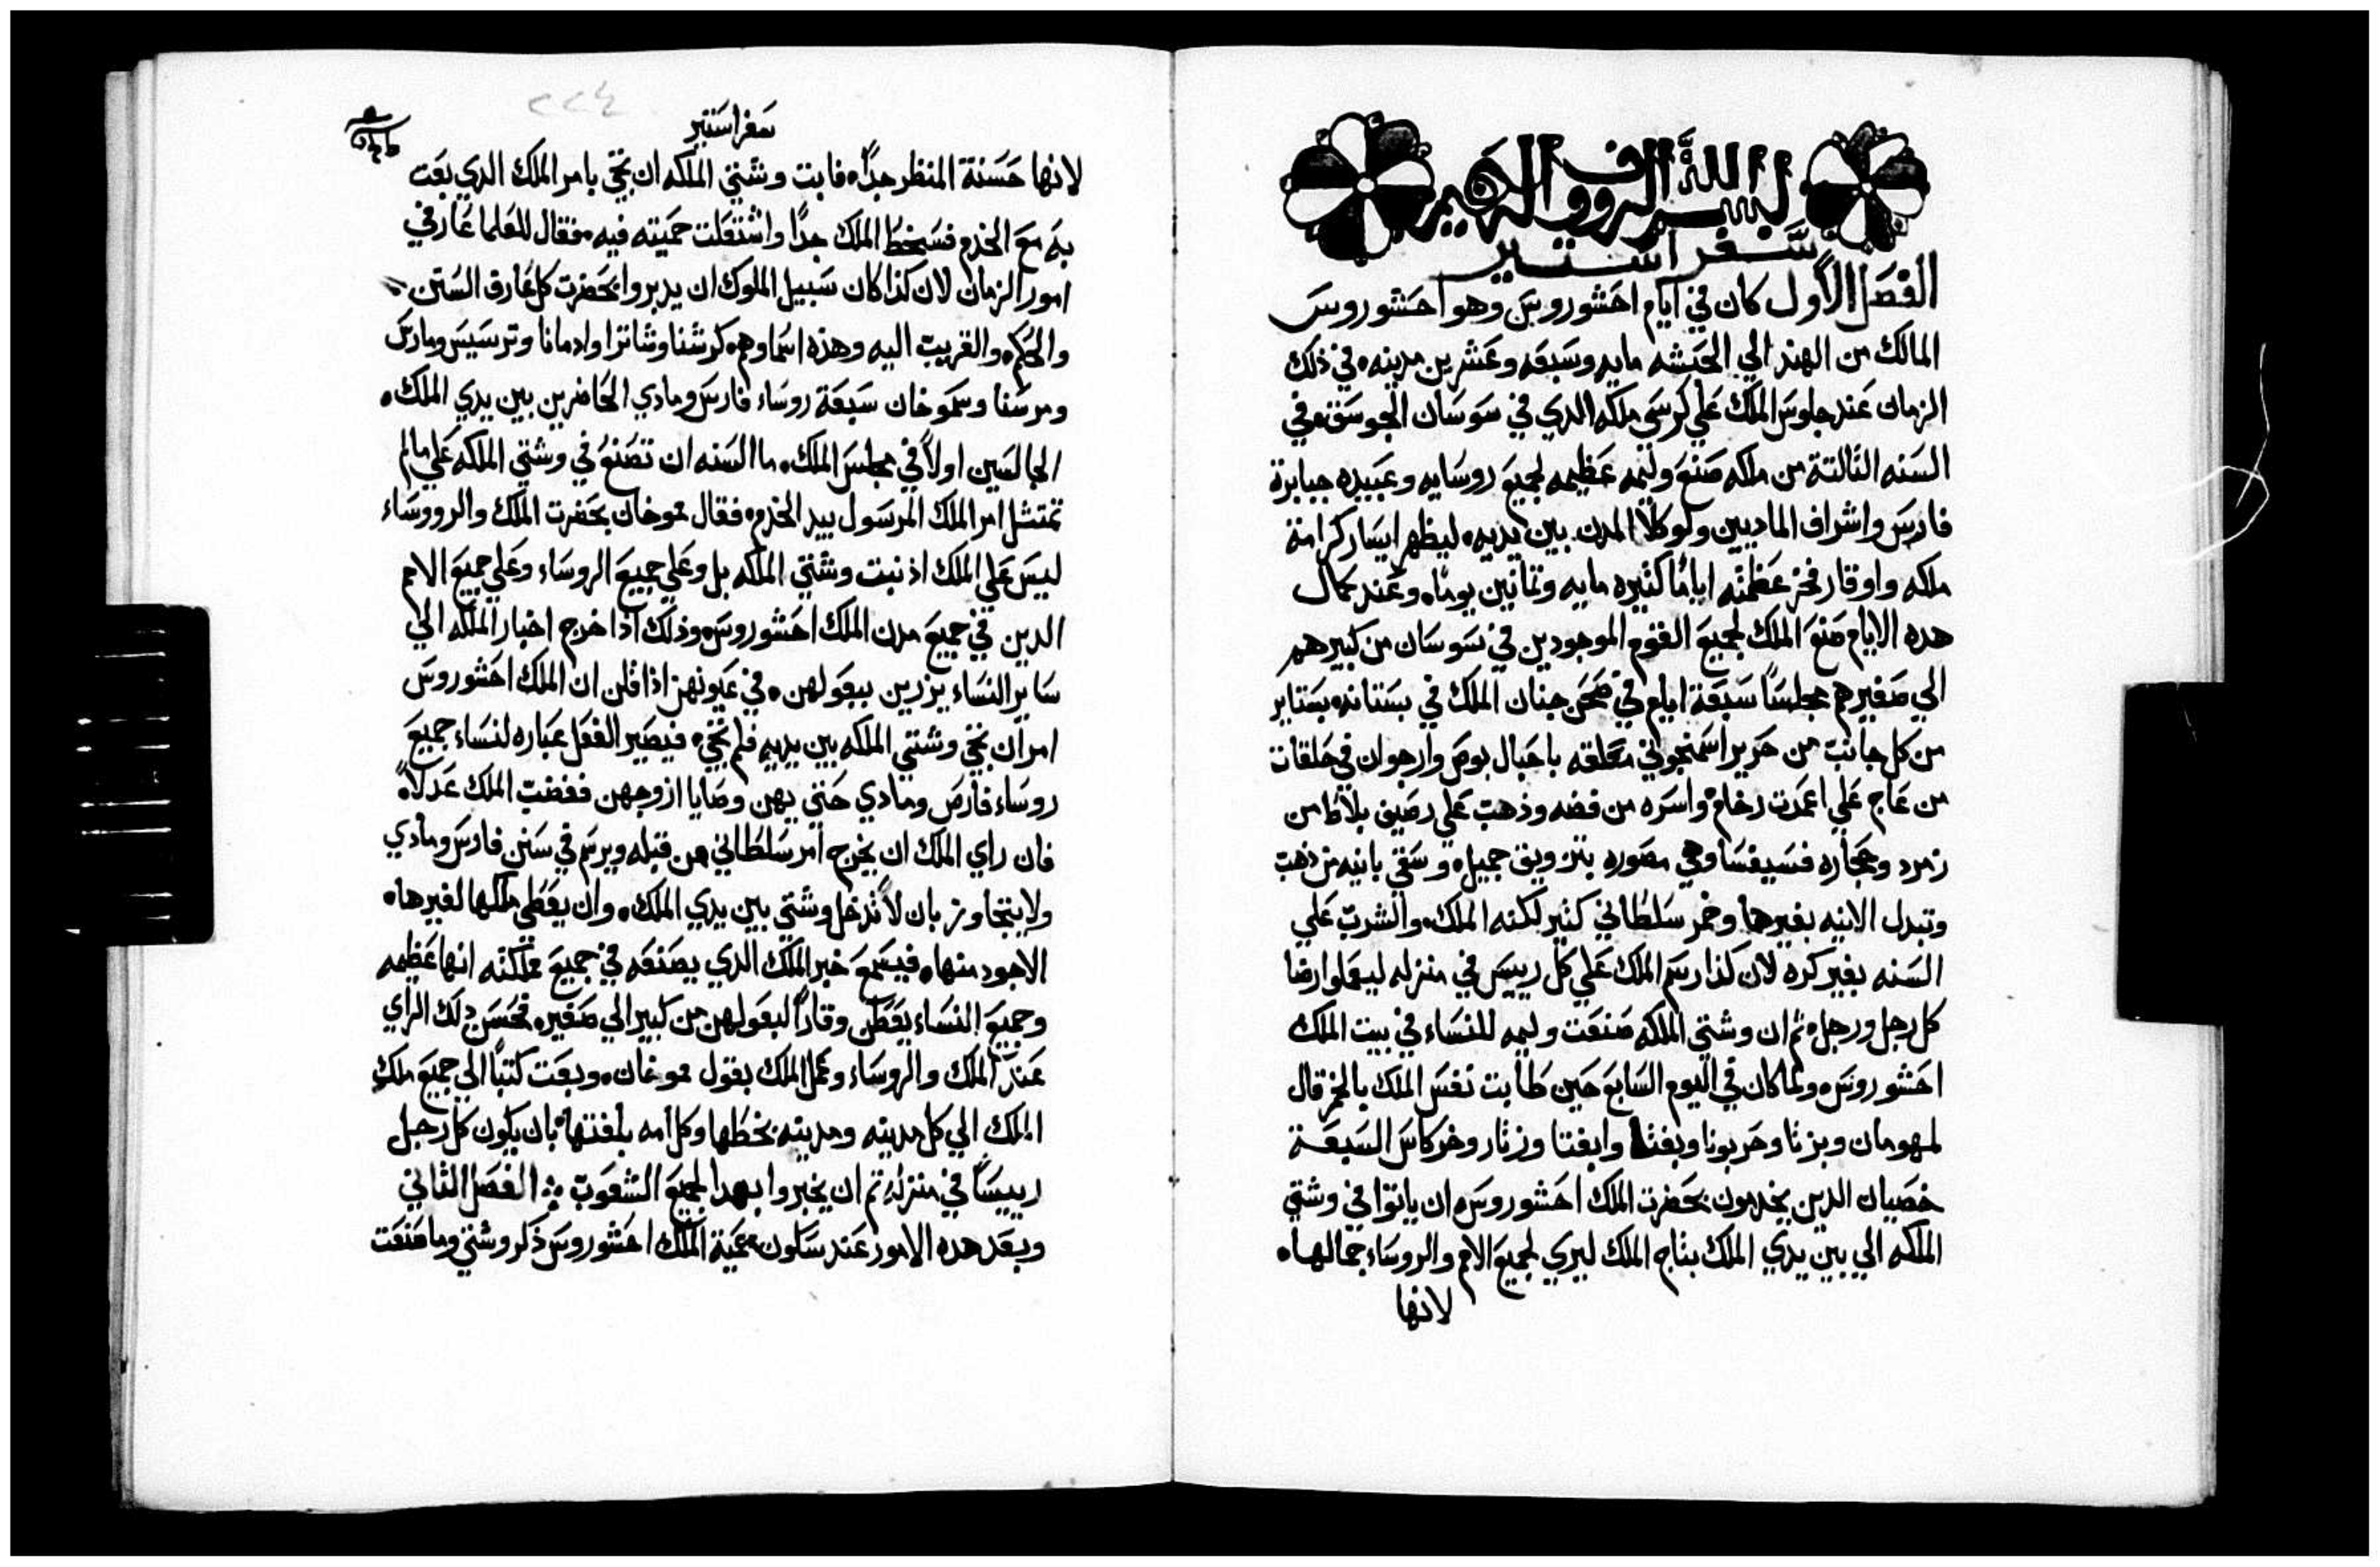 بسم الله الرووف الرحيم
سفر استير
الفصل الاول كان في ايام احشوروس وهو احشوروس
المالك من الهند الي الحبشه مايه وسبعه وعشرين مدينه في ذلك
الزمان عند جلوس الملك علي كرسي ملكه الدي في سوسان الجوسق في
السنه الثالتة من ملكه صنع وليمه عظيمه لجميع روسايه وعبيده جبابرة
فارس واشراف الماديين ووكلا المدن بين يديه ليظهر ايسار كرامة
ملكه واوقار فخر عظمته اياما كثيره مايه وثمانين يوما وعند كمال
هده الايام صنع الملك لجميع القوم الموجودين في سوسان من كبيرهم
الي صغيرهم مجلسا سبعة ايام في صحن جنان الملك في بستانه بستاير
من كل جانب من حرير اسمنجوني معلقه باحبال بوص وارجوان في حلقات
من عاج علي اعمدت رخام واسره من فضه وذهب علي رصيف بلاط من
زمرد وحجاره فسيفسا وهي مصوره بتزويق جميل وسقي بانيه من ذهب
وتبدل الانيه بغيرها وخمر سلطاني كثير لكنه الملك والشرب علي
السنه بغير كره لان كذا رسم الملك علي كل رييس في منزله ليعملوا رضا
كل رجل ورجل ثم ان وشتي الملكه صنعت وليمه للنساء في بيت الملك
احشوروس ولما كان في اليوم السابع حين طابت نفس الملك بالخمر قال
لمهومان وبزثا وحربونا وبغثا وابغتا وزثار وخركاس السبعة
خصيان الدين يخدمون بحضرت الملك احشوروس ان ياتوا في وشتي
الملكه الي بين يدي الملك بتاج الملك ليري لجميع الامم والروساء جمالها
لانها
٢٢٤
سفر استير
لانها حسنة المنظر جدا فابت وشتي الملكه ان تجي بامر الملك الدي بعت
به مع الخدم فسخط الملك جدا واشتعلت حميته فيه فقال للعلما عارفي
امور الزمان لان كذا كان سبيل الملوك ان يدبروا بحضرت كل عارف السنن
والحكم والقريب اليه وهذه اسماوهم كرشنا وشاترا وادماتا وترسيس ومارس
ومرسنا وسموخان سبعة روساء فارس ومادي الحاضرين بين يدي الملك
الجالسين اولا في مجلس الملك ما السنه ان تصنع في وشتي الملكه علي مالم
تمتثل امر الملك المرسول بيد الخدم فقال موخان بحضرت الملك والرووساء
ليس علي الملك اذنبت وشتي الملكه بل وعلي جميع الروساء وعلي جميع الامم
الدين في جميع مدن الملك احشوروس وذلك اذا خرج اخبار الملكه الي
ساير النساء يزرين ببعولهن في عيونهن اذا قلن ان الملك احشوروس
امر ان تجي وشتي الملكه بين يديه فلم تجي فيصير الفعل عباره لنساء جميع
روساء فارص ومادي حتي يهن وصايا ازوجهن فغضب الملك عدلا
فان راي الملك ان يخرج امر سلطاني من قبله ويرسم في سنن فارس ومادي
ولا يتجاوز بان لا تدخل وشتي بين يدي الملك وان يعطي ملكها لغيرها
الاجود منها فيسمع خبر الملك الدي يصنعه في جميع مملكته انها عظيمه
وجميع النساء يعطن وقارا لبعولهن من كبير الي صغير فحسن دلك الراي
عند الملك والروساء وعمل الملك بقول موخان وبعت كتبا الي جميع ملك
الملك الي كل مدينه ومدينه بخطها وكل امه بلغتها بان يكون كل رجل
رييسا في منزله ثم ان يخبروا بهدا لجميع الشعوب الفصل الثاني
وبعد هده الامور عند سكون حمية الملك احشوروس ذكر وشتي وما صنعت